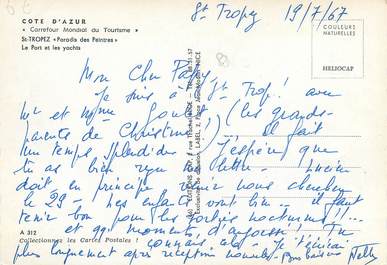 6€
COTE D'AZUR
« Carrefour Mondial du Tourisme »
St-TROPEZ « Paradis des Peintres »
Le Port et les yachts
St Tropez 19/7/67
COULEURS
NATURELLES
HELIOCAP
Mon Cher Papy,
Je suis à St Trop! avec
Mr et Mme (les grands-
parents de Christine) il fait
un temps splendide. J'espère que
tu as bien reçu ma lettre - Lucien
doit en principe venir nous chercher
le 29 - nos enfants vont bien - il faut
tenir bon pour les sorties nocturnes!!! --
et moments d'angoisse! Tu
connais cela - Je t'écrirai
plus longuement après réception nouvelles - Bons baisers Nelly
A 312
Collectionnez les Cartes Postales !